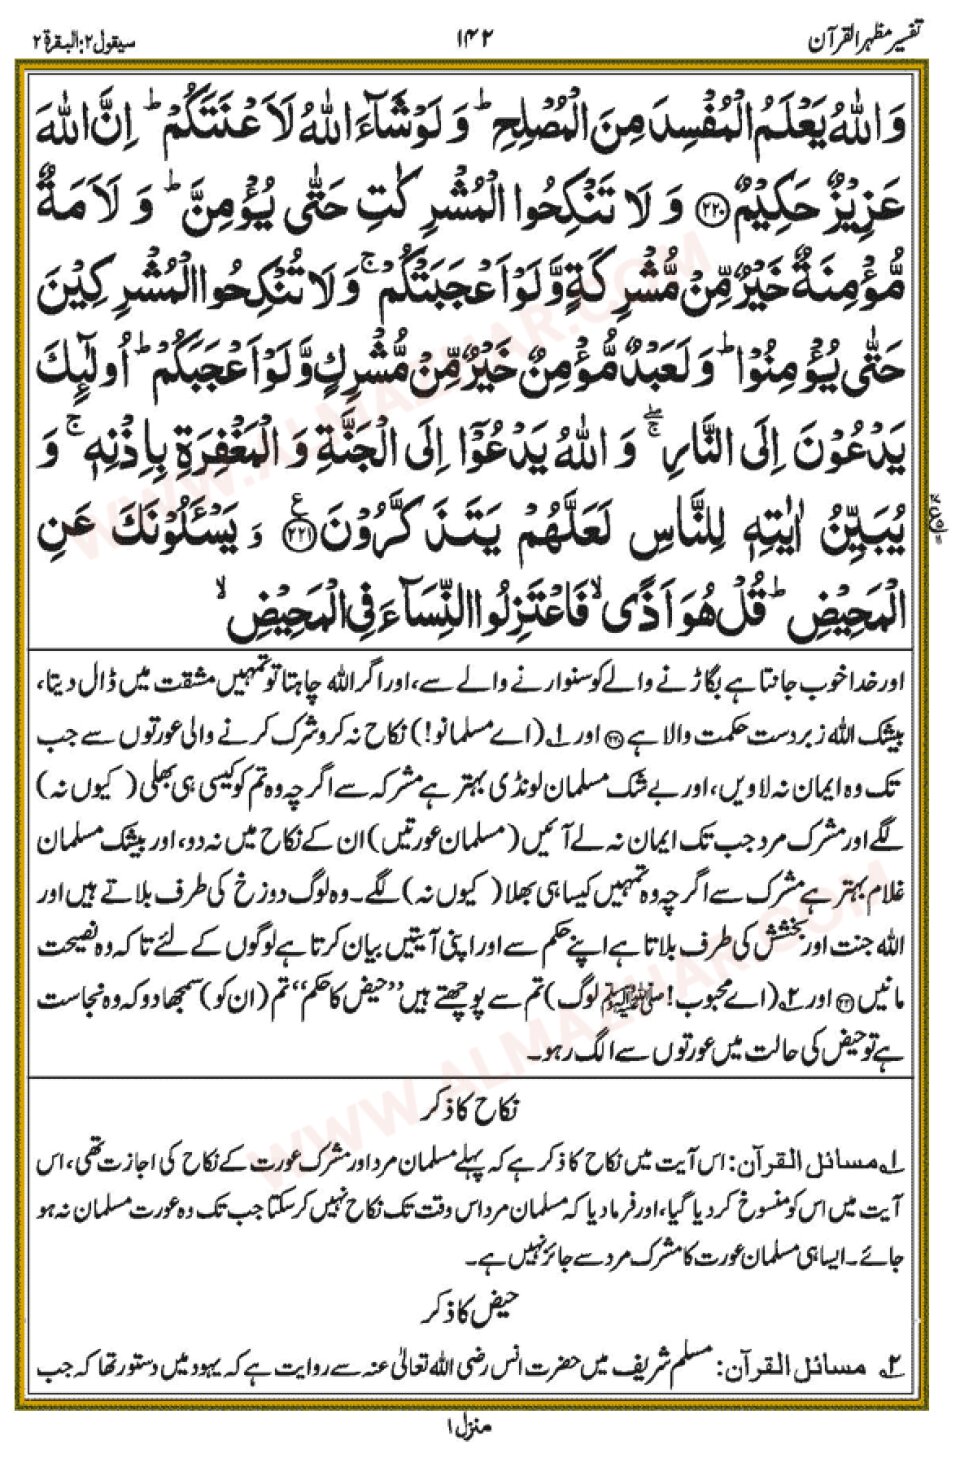 تفسیر مظہر القرآن
۱۴۲
سیقول ۲: البقرة ۲
وَاللّٰهُ یَعْلَمُ الْمُفْسِدَ مِنَ الْمُصْلِحِ ؕ وَلَوْ شَآءَ اللّٰهُ لَاَعْنَتَكُمْ ؕ اِنَّ اللّٰهَ
عَزِیْزٌ حَكِیْمٌ ﴿۲۲۰﴾ وَلَا تَنْكِحُوا الْمُشْرِكٰتِ حَتّٰى یُؤْمِنَّ ؕ وَلَاَمَةٌ
مُّؤْمِنَةٌ خَیْرٌ مِّنْ مُّشْرِكَةٍ وَّلَوْ اَعْجَبَتْكُمْ ۚ وَلَا تُنْكِحُوا الْمُشْرِكِیْنَ
حَتّٰى یُؤْمِنُوْا ؕ وَلَعَبْدٌ مُّؤْمِنٌ خَیْرٌ مِّنْ مُّشْرِكٍ وَّلَوْ اَعْجَبَكُمْ ؕ اُولٰٓئِكَ
یَدْعُوْنَ اِلَى النَّارِ ۖۚ وَاللّٰهُ یَدْعُوْۤا اِلَى الْجَنَّةِ وَالْمَغْفِرَةِ بِاِذْنِهٖ ۚ وَ
یُبَیِّنُ اٰیٰتِهٖ لِلنَّاسِ لَعَلَّهُمْ یَتَذَكَّرُوْنَ ﴿۲۲۱﴾ ع وَیَسْـَٔلُوْنَكَ عَنِ
الْمَحِیْضِ ؕ قُلْ هُوَ اَذًى ۙ فَاعْتَزِلُوا النِّسَآءَ فِی الْمَحِیْضِ ۙ
اور خدا خوب جانتا ہے بگاڑنے والے کو سنوارنے والے سے، اور اگر اللہ چاہتا تو تمہیں مشقت میں ڈال دیتا،
بیشک اللہ زبردست حکمت والا ہے ﴿۲۲۰﴾ اور ۱؎ (اے مسلمانو!) نکاح نہ کرو شرک کرنے والی عورتوں سے جب
تک وہ ایمان نہ لاویں، اور بے شک مسلمان لونڈی بہتر ہے مشرکہ سے اگرچہ وہ تم کو کیسی ہی بھلی (کیوں نہ)
لگے اور مشرک مرد جب تک ایمان نہ لے آئیں (مسلمان عورتیں) ان کے نکاح میں نہ دو، اور بیشک مسلمان
غلام بہتر ہے مشرک سے اگرچہ وہ تمہیں کیسا ہی بھلا (کیوں نہ) لگے۔ وہ لوگ دوزخ کی طرف بلاتے ہیں اور
اللہ جنت اور بخشش کی طرف بلاتا ہے اپنے حکم سے اور اپنی آیتیں بیان کرتا ہے لوگوں کے لئے تاکہ وہ نصیحت
مانیں ﴿۲۲۱﴾ اور ۲؎ (اے محبوب! ﷺ لوگ) تم سے پوچھتے ہیں ’’حیض کا حکم‘‘ تم (ان کو) سمجھا دو کہ وہ نجاست
ہے تو حیض کی حالت میں عورتوں سے الگ رہو۔
نکاح کا ذکر
۱؎ مسائل القرآن: اس آیت میں نکاح کا ذکر ہے کہ پہلے مسلمان مرد اور مشرک عورت کے نکاح کی اجازت تھی، اس
آیت میں اس کو منسوخ کر دیا گیا، اور فرما دیا کہ مسلمان مرد اس وقت تک نکاح نہیں کر سکتا جب تک وہ عورت مسلمان نہ ہو
جائے۔ ایسا ہی مسلمان عورت کا مشرک مرد سے جائز نہیں ہے۔
حیض کا ذکر
۲؎ مسائل القرآن: مسلم شریف میں حضرت انس رضی اللہ تعالیٰ عنہ سے روایت ہے کہ یہود میں دستور تھا کہ جب
منزل ۱
WWW.ALMAZHAR.COM
WWW.ALMAZHAR.COM